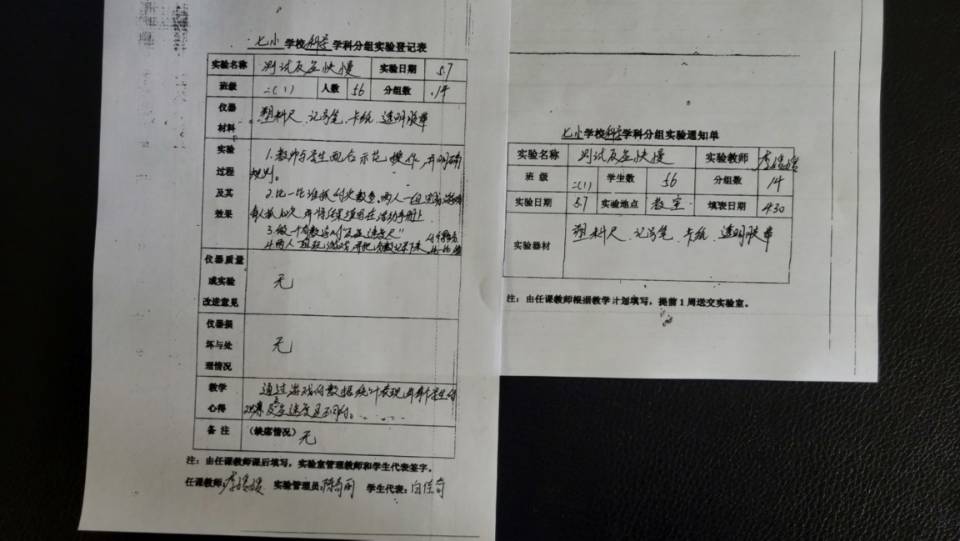 七小学校科学学科分组实验登记表
实验名称 测试反应快慢 实验日期 5.7
班级 二(1) 人数 56 分组数 14
仪器材料 塑料尺、记号笔、卡纸、透明胶单
实验过程及其效果 1.教师与学生配合示范操作,并明确
规则。
2.比一比谁抓的次数多,两人一组
每人抓10次,并将结果填写在活动手册上
3.做一个有数字的"反应速度尺"
4.两人一组玩游戏,并把次数记录下来
仪器质量或实验改进意见 无
仪器损坏与处理情况 无
教学心得 通过游戏将数据统计表现出每个学生的
反应速度是不同的。
备注 (缺席情况) 无
注:由任课教师课后填写,实验室管理教师和学生代表签字。
任课教师: 实验管理员: 学生代表:
七小学校科学学科分组实验通知单
实验名称 测试反应快慢 实验教师
班级 二(1) 学生数 56 分组数 14
实验日期 5.7 实验地点 教室 填表日期 4.30
实验器材 塑料尺、记号笔、卡纸、透明胶单
注:由任课教师根据教学计划填写,提前1周送交实验室。